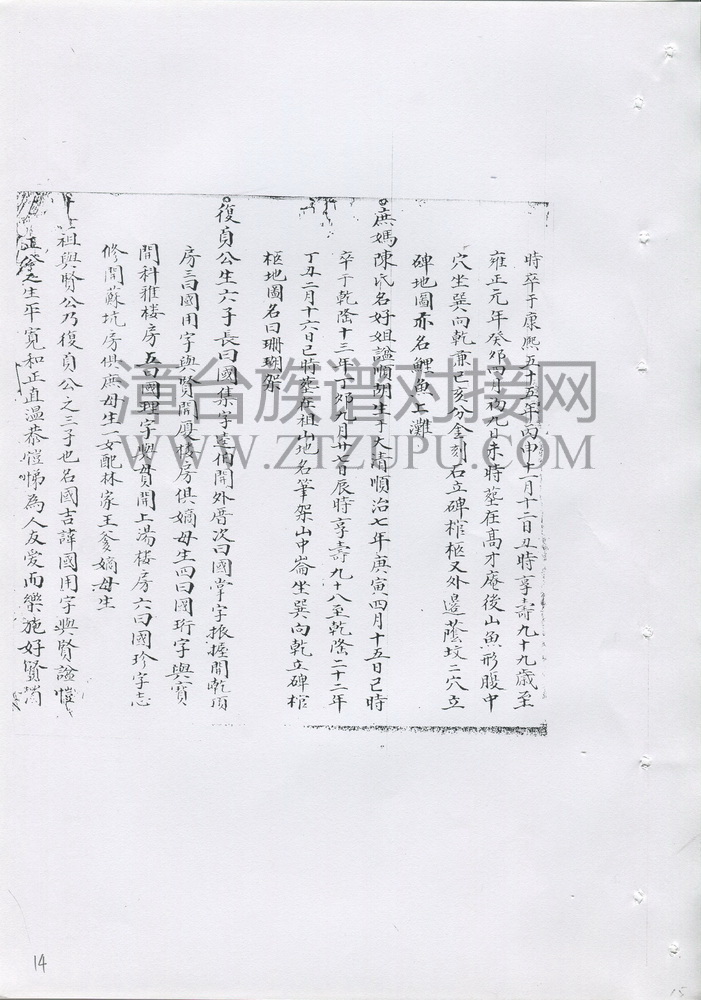 時卒于康熙五十五年丙申十一月十二日丑時享壽九十九歲至
雍正元年癸卯四月初九日未時塟在高才庵後山魚形腹中
穴坐巽向乾兼巳亥分金刻石立碑棺柩又外邉蔭坟二穴立
碑地圖亦名鯉魚上灘
庶媽陳氏名好姐謚順胡生于大清順治七年庚寅四月十五日己時
卒于乾隆十三年丁卯九月廿七日辰時享壽九十八至乾隆二十二年
丁丑二月十六日己時塟在祖山地名筆架山中崙坐巽向乾立碑棺
柩地圖名曰珊瑚架
復貞公生六子長曰國集字達伯開外厝次曰國掌字振握開乾頂
房三曰國用字興賢開厦樓房俱嫡母生四曰國珩字興賓
開科雅楼房五曰國理字興貫開上湯楼房六曰國珍字志
修開蘇坑房俱庶母生一女配林家王爹嫡母生
祖興賢公乃復貞公之三子也名國吉諱國用字興賢謚愷
直公之生平寬和正直温恭愷悌為人友爱而樂施好賢
漳台族谱对接网
WWW.ZTZUPU.COM
14
15